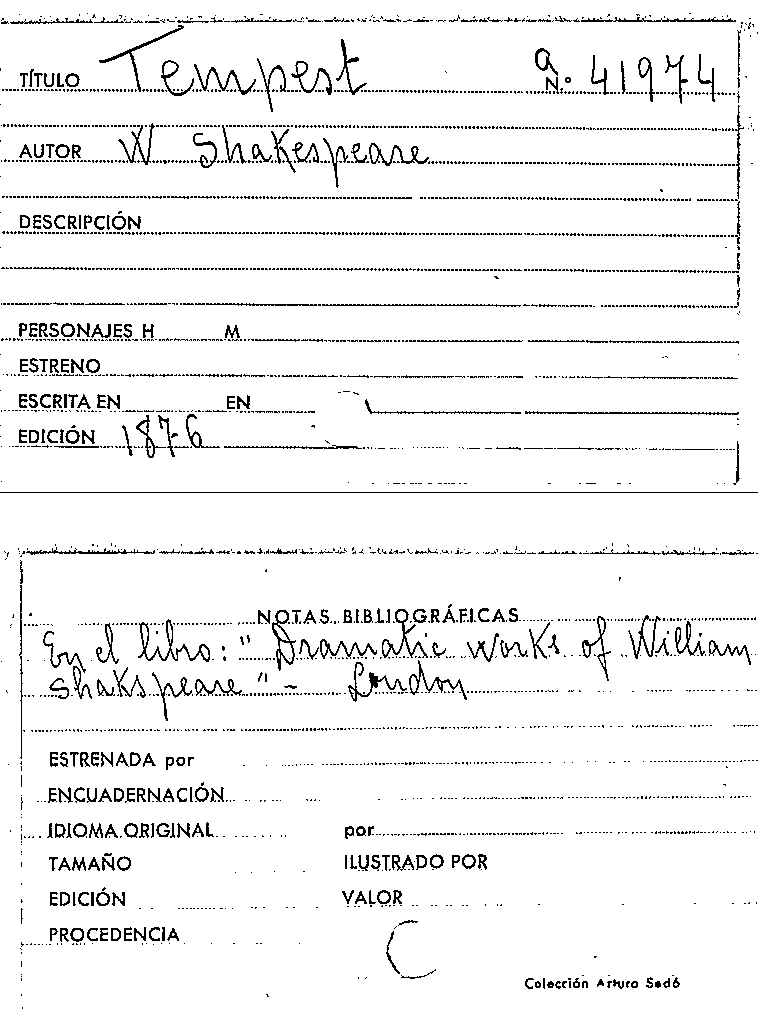 TÍTULO Tempest a N.º 41974
AUTOR W. Shakespeare
DESCRIPCIÓN
PERSONAJES H M
ESTRENO
ESCRITA EN EN
EDICIÓN 1876
NOTAS BIBLIOGRÁFICAS
En el libro: "Dramatic works of William
Shakspeare" - London
ESTRENADA por
ENCUADERNACIÓN
IDIOMA ORIGINAL por
TAMAÑO ILUSTRADO POR
EDICIÓN VALOR
PROCEDENCIA C
Colección Arturo Sedó